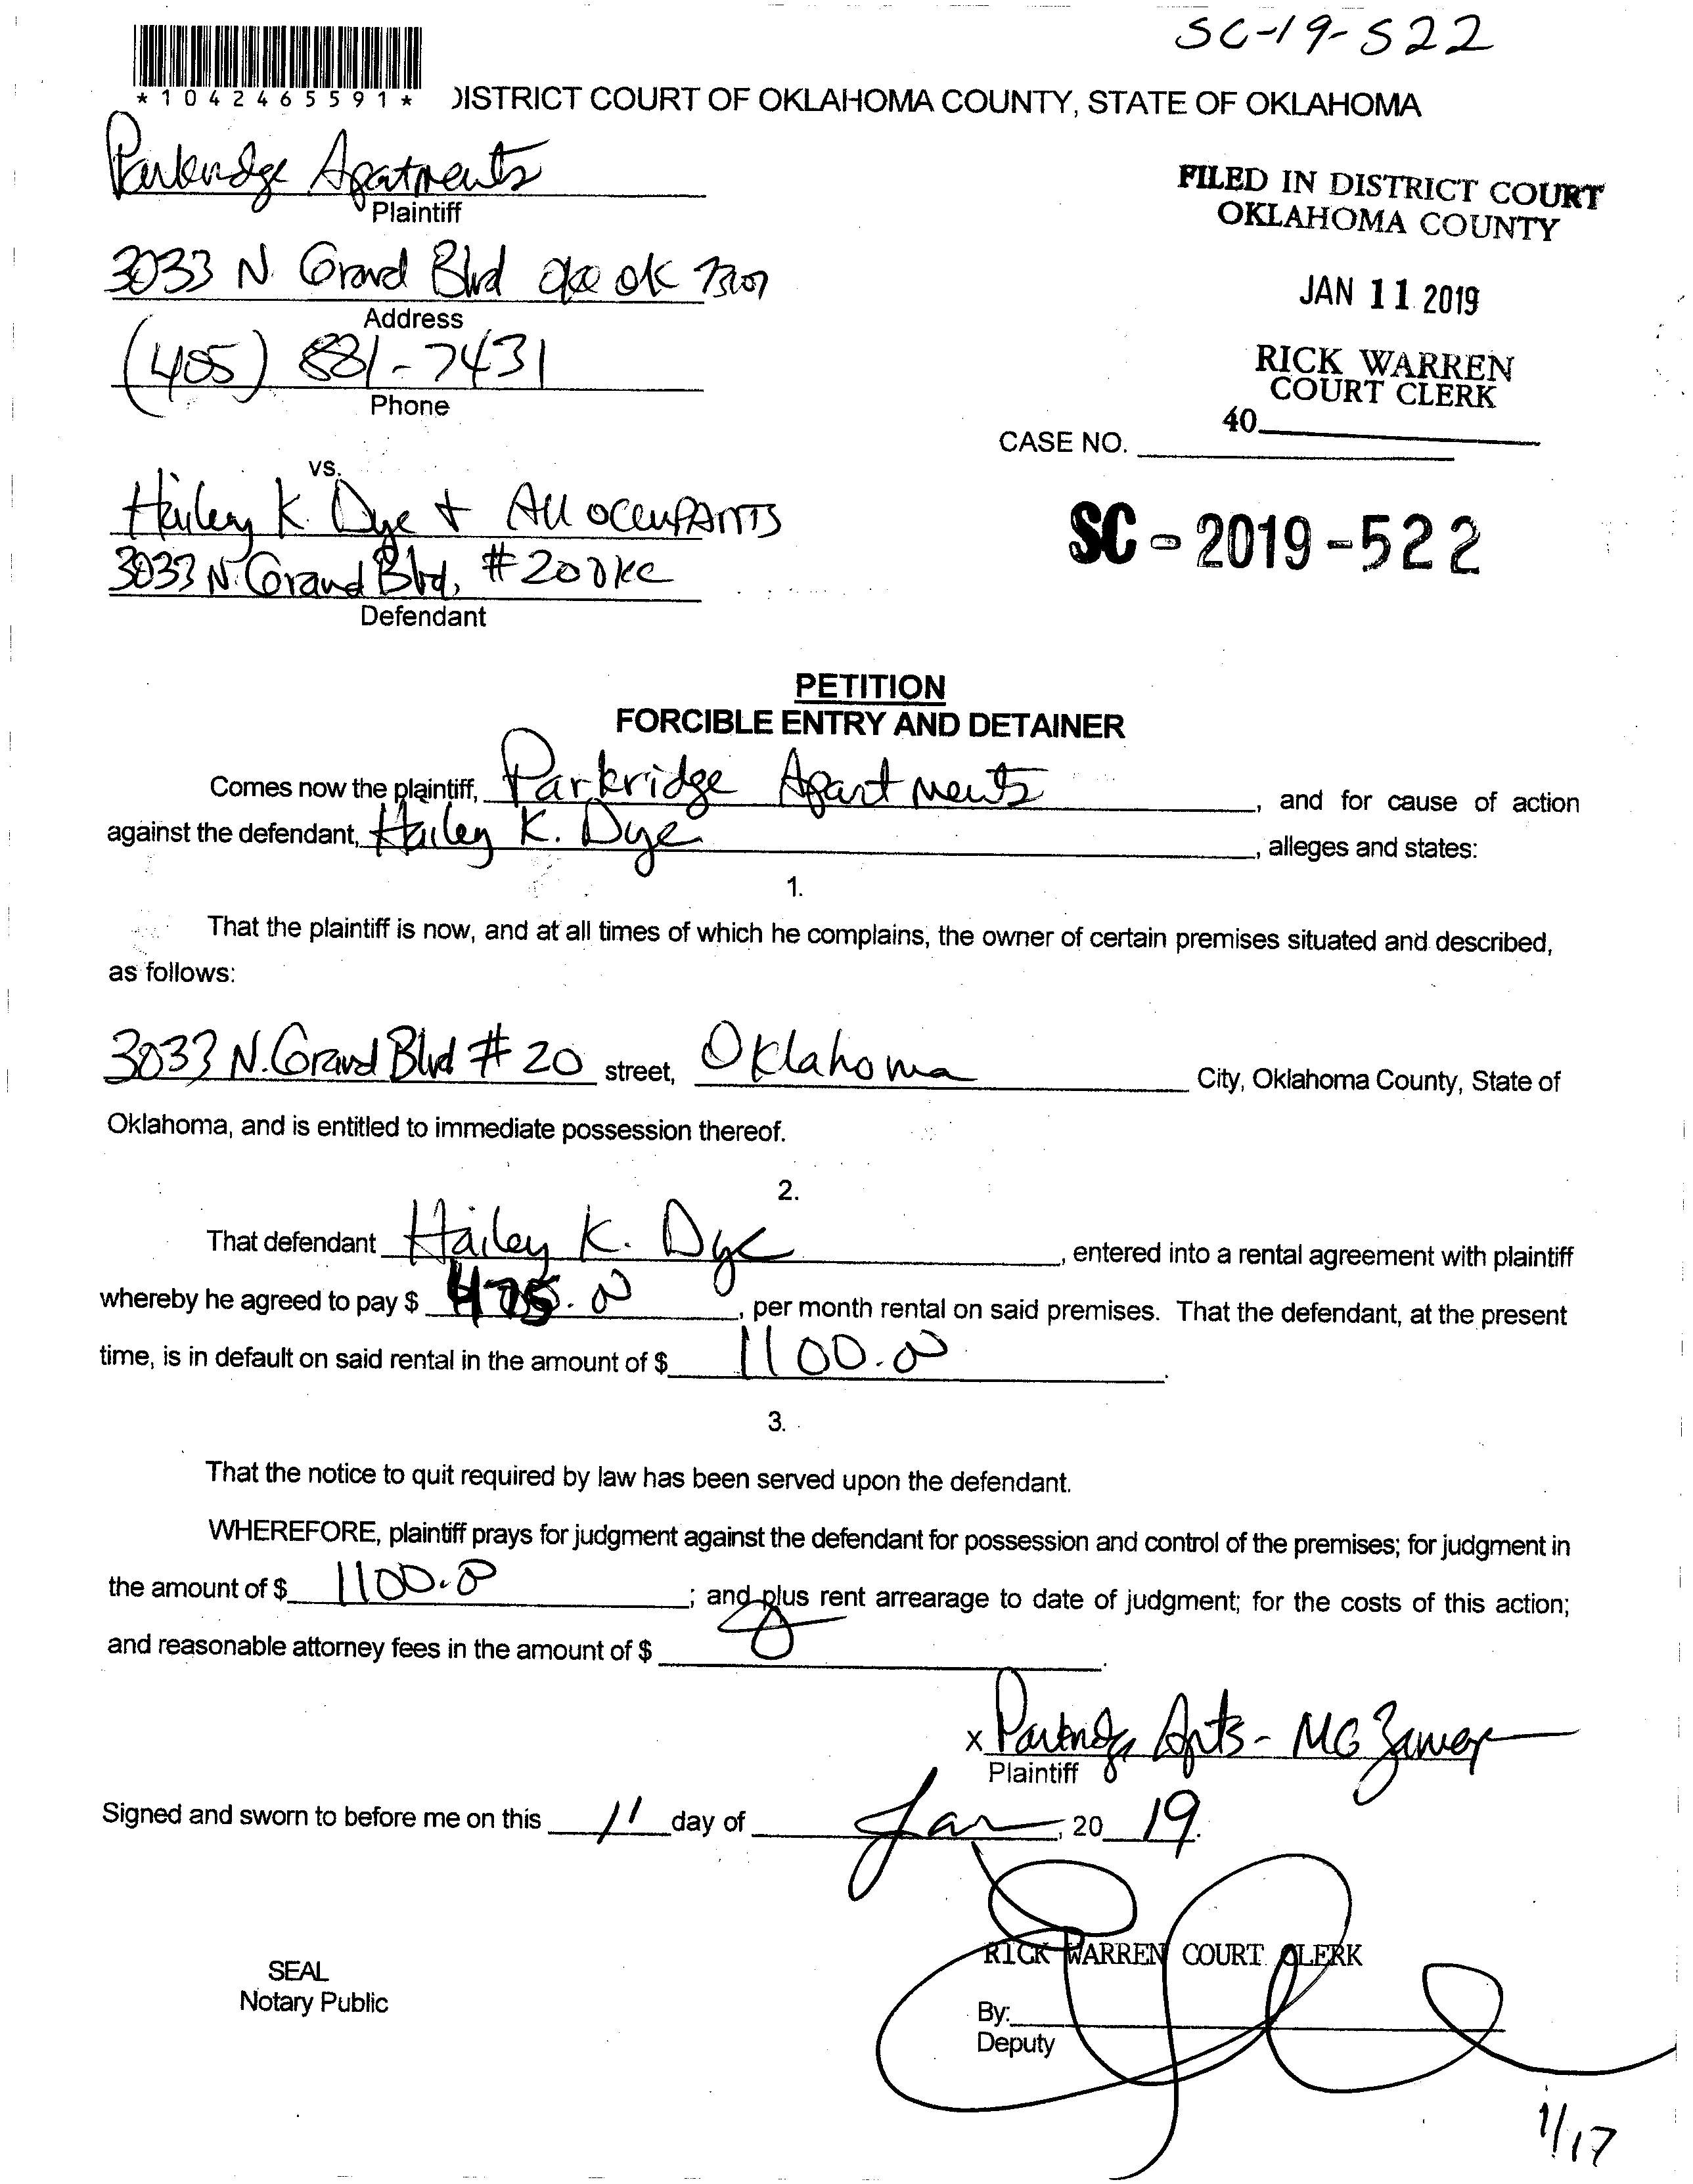 SC-19-522
*1042465591*
DISTRICT COURT OF OKLAHOMA COUNTY, STATE OF OKLAHOMA
Parkridge Apatments
Plaintiff
FILED IN DISTRICT COURT
OKLAHOMA COUNTY
3033 N. Grand Blvd okc ok 73107
Address
JAN 11 2019
(405) 881-7431
Phone
RICK WARREN
COURT CLERK
40
CASE NO.
vs.
Hailey K. Dye + All OCCUPANTS
3033 N. Grand Blvd, #20 OKC
Defendant
SC-2019-522
PETITION
FORCIBLE ENTRY AND DETAINER
Comes now the plaintiff, Parkridge Apartments, and for cause of action
against the defendant, Hailey K. Dye, alleges and states:
1.
That the plaintiff is now, and at all times of which he complains, the owner of certain premises situated and described,
as follows:
3033 N. Grand Blvd # 20 street, Oklahoma City, Oklahoma County, State of
Oklahoma, and is entitled to immediate possession thereof.
2.
That defendant Hailey K. Dye, entered into a rental agreement with plaintiff
whereby he agreed to pay $ 475.00, per month rental on said premises. That the defendant, at the present
time, is in default on said rental in the amount of $ 1100.00.
3.
That the notice to quit required by law has been served upon the defendant.
WHEREFORE, plaintiff prays for judgment against the defendant for possession and control of the premises; for judgment in
the amount of $ 1100.00; and plus rent arrearage to date of judgment; for the costs of this action;
and reasonable attorney fees in the amount of $ 0.
x Parkridge Apts - MG
Plaintiff
Signed and sworn to before me on this 11 day of Jan, 20 19.
RICK WARREN COURT CLERK
SEAL
Notary Public
By:
Deputy
1/17